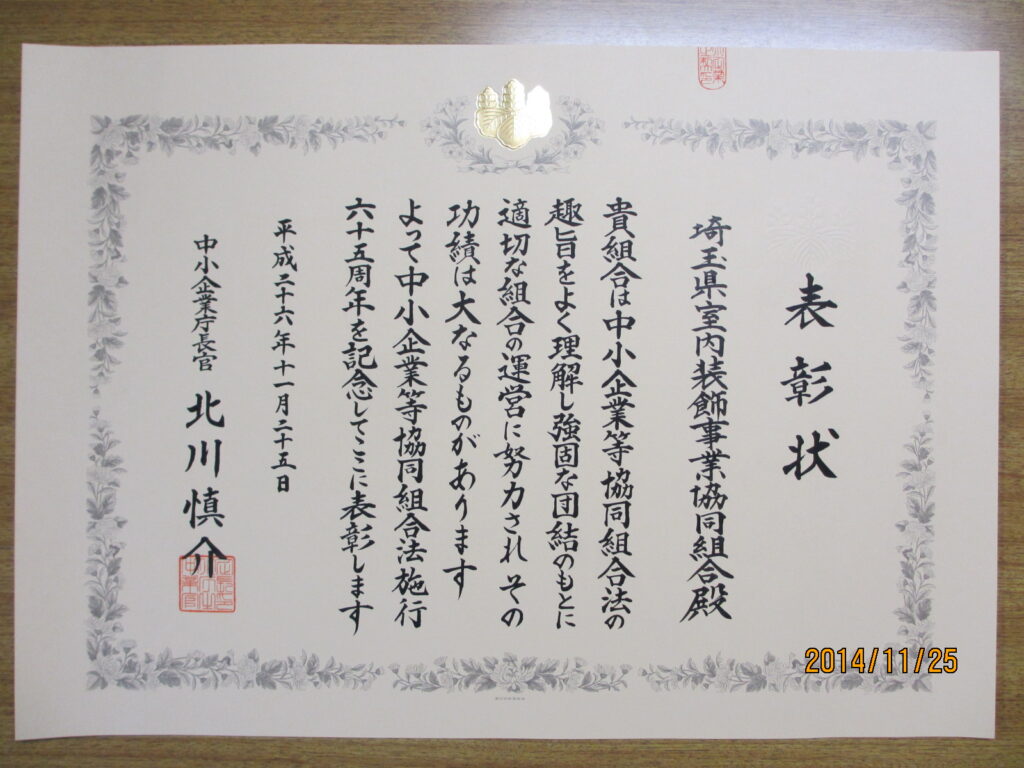 表彰状
埼玉県室内装飾事業協同組合殿
貴組合は中小企業等協同組合法の
趣旨をよく理解し強固な団結のもとに
適切な組合の運営に努力されその
功績は大なるものがあります
よって中小企業等協同組合法施行
六十五周年を記念してここに表彰します
平成二十六年十一月二十五日
中小企業庁長官 北川慎介
2014/11/25